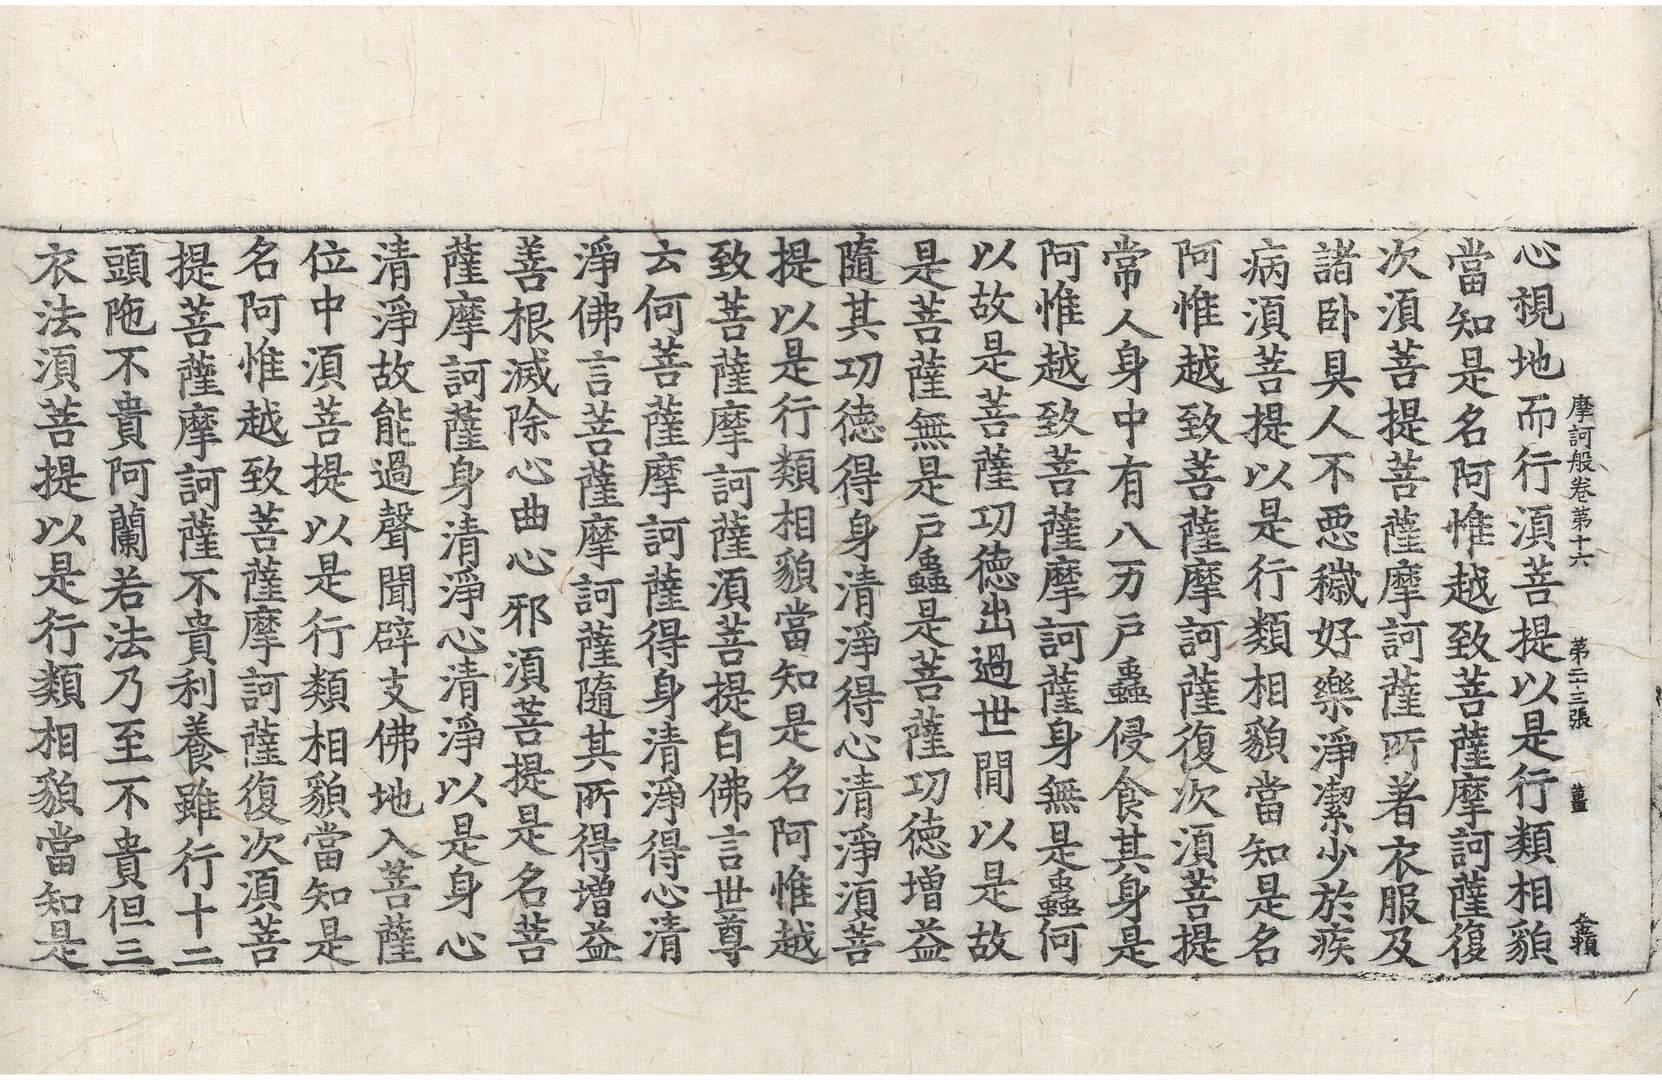 摩訶般卷第十六 第二十三張 薑
心視地而行須菩提以是行類相貌
當知是名阿惟越致菩薩摩訶薩復
次須菩提菩薩摩訶薩所著衣服及
諸卧具人不惡穢好樂淨潔少於疾
病須菩提以是行類相貌當知是名
阿惟越致菩薩摩訶薩復次須菩提
常人身中有八万戶蟲侵食其身是
阿惟越致菩薩摩訶薩身無是蟲何
以故是菩薩功德出過世間以是故
是菩薩無是戶蟲是菩薩功德增益
隨其功德得身清淨得心清淨須菩
提以是行類相貌當知是名阿惟越
致菩薩摩訶薩須菩提白佛言世尊
云何菩薩摩訶薩得身清淨得心清
淨佛言菩薩摩訶薩隨其所得增益
善根滅除心曲心邪須菩提是名菩
薩摩訶薩身清淨心清淨以是身心
清淨故能過聲聞辟支佛地入菩薩
位中須菩提以是行類相貌當知是
名阿惟越致菩薩摩訶薩復次須菩
提菩薩摩訶薩不貴利養雖行十二
頭陁不貴阿蘭若法乃至不貴但三
衣法須菩提以是行類相貌當知是